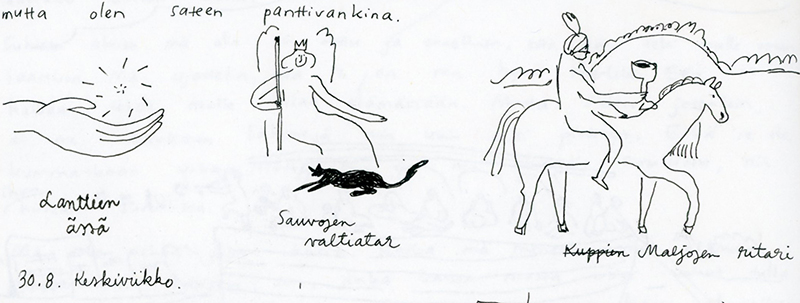 mutta olen sateen panttivankina.
Lanttien
ässä
Sauvojen
valtiatar
Kuppien Maljojen ritari
30.8. Keskiviikko.